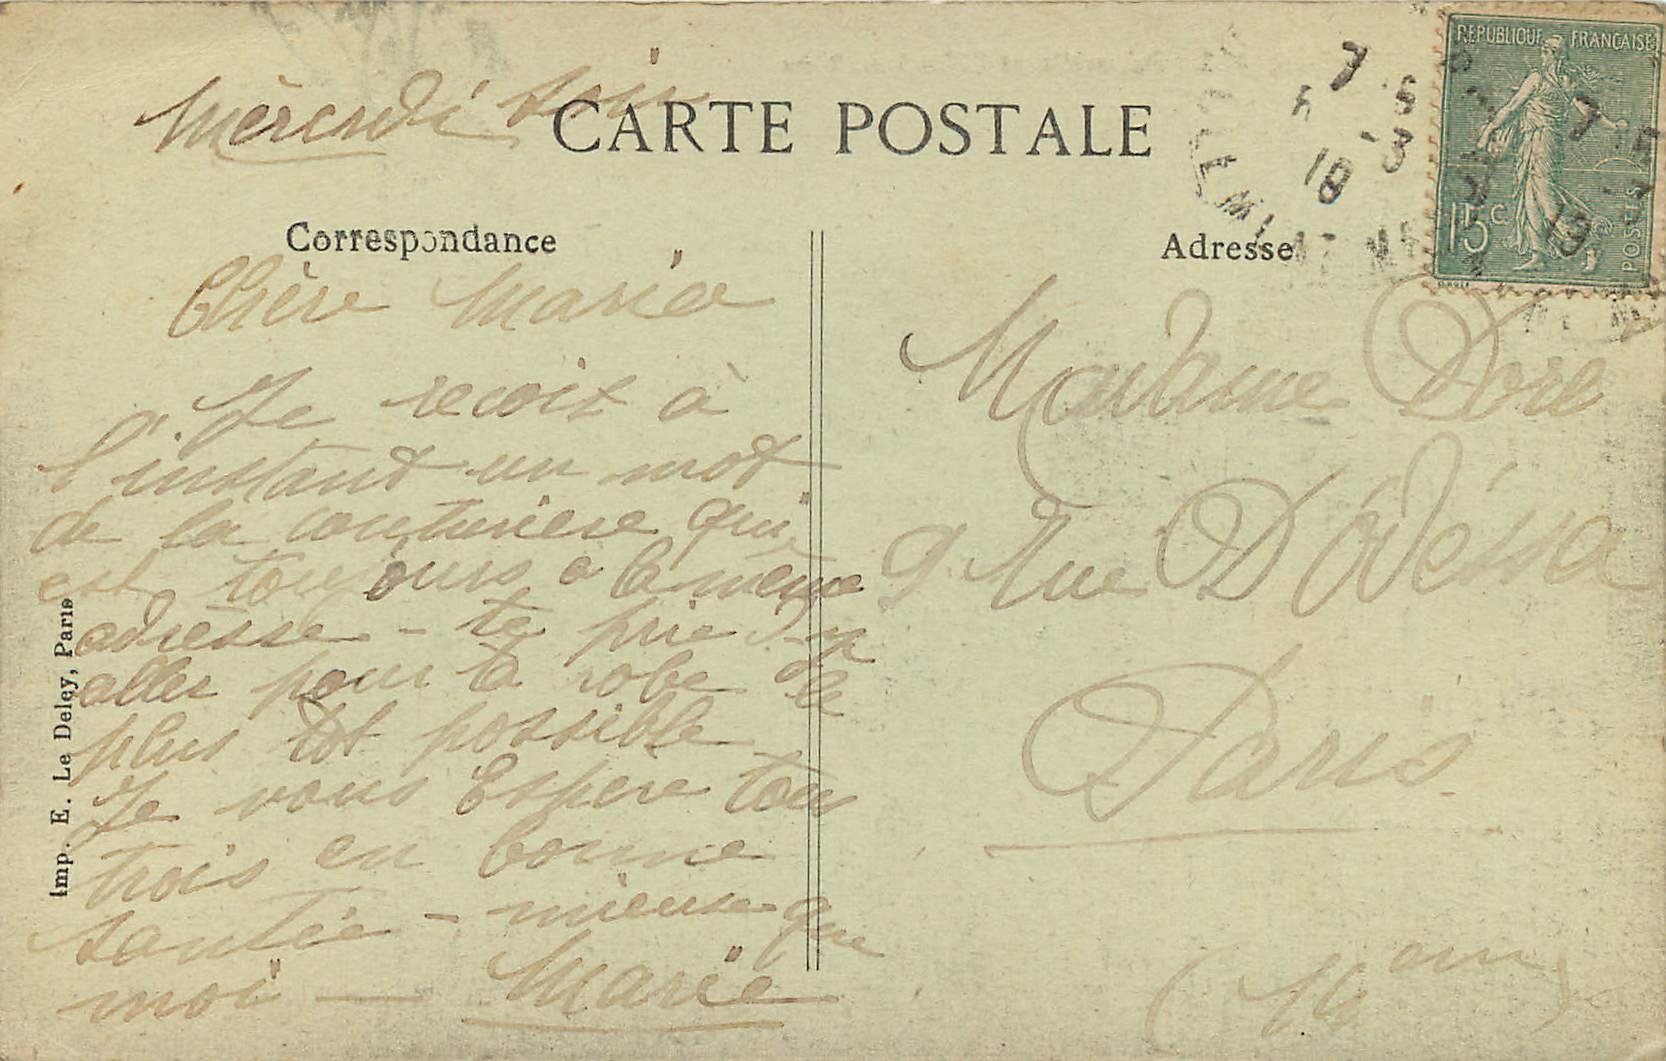 Mercredi soir
CARTE POSTALE
RÉPUBLIQUE FRANÇAISE
15c
POSTES
7 S
-3
19
7
19
Correspondance
Adresse
Chère Maria
Je recoit à
l'instant un mot
de la couturiere qui
est toujours a la meme
adresse - te prie d'y
aller pour la robe le
plus tot possible
Je vous Espere tous
trois en bonne
santée - mieux que
moi — Marie
Imp. E. Le Deley, Paris
Madame Doré
9 Rue D'Odéssa
Paris
(14 em)